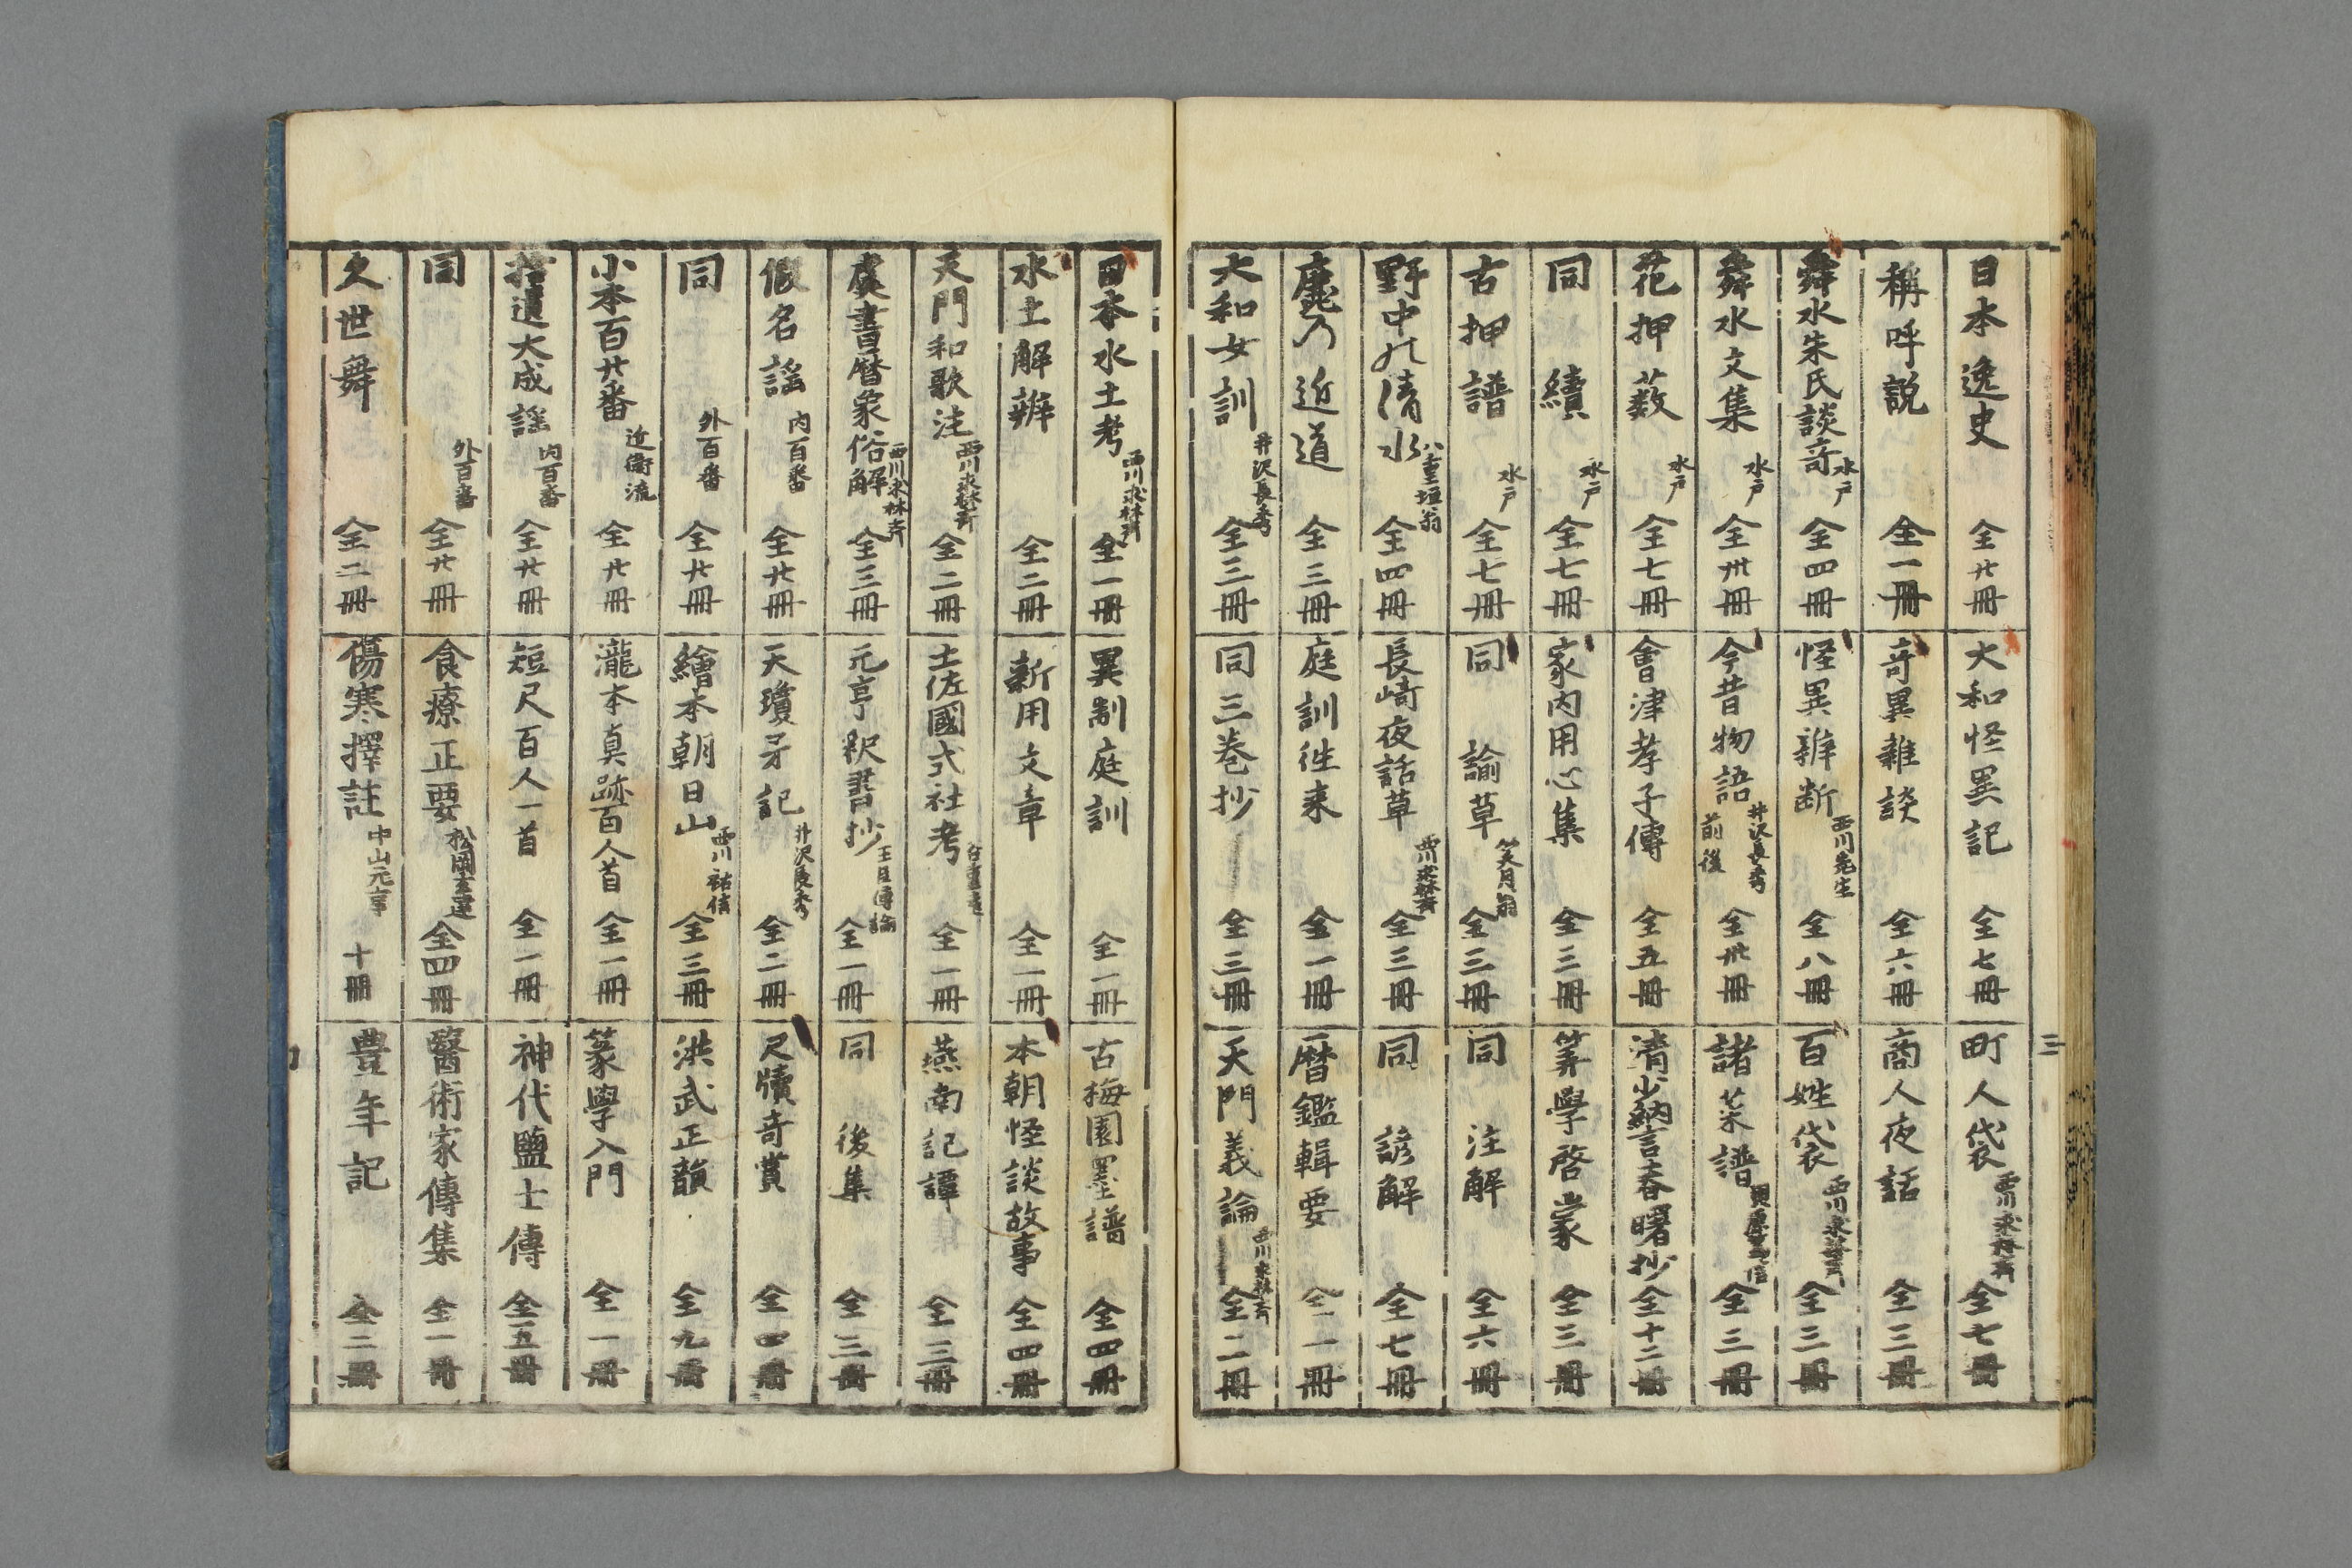 日本逸史 全廿冊
稱呼説 全一冊
舜水朱氏談奇 水戸 全四冊
舜水文集 水戸 全卅冊
花押薮 水戸 全七冊
同 續 水戸 全七冊
古押譜 水戸 全七冊
野中の清水 八重垣翁 全四冊
麓乃近道 全三冊
大和女訓 井沢長秀 全三冊
大和怪異記 全七冊
奇異雜談 全六冊
怪異辨断 西川先生 全八冊
今昔物語 井沢長秀 前後 全卅冊
會津孝子傳 全五冊
家内用心集 全三冊
同 諭草 笑月翁 全三冊
長崎夜話草 西川求林齊 全三冊
庭訓徃来 全一冊
同三巻抄 全三冊
町人袋 西川求林齊 全七冊
商人夜話 全三冊
百姓袋 西川求林斉 全三冊
諸菜譜 貝原篤信 全三冊
清少納言春曙抄 全十二冊
筭學啓蒙 全三冊
同 注解 全六冊
同 諺解 全七冊
暦鑑輯要 全一冊
天門義論 西川求林斉 全二冊
三
日本水土考 西川求林斉 全一冊
水土解辨 全二冊
天門和歌注 西川求林斉 全二冊
虞書暦象俗解 西川求林斉 全三冊
假名謡 内百番 全廿冊
同 外百番 全廿冊
小本百廿番 近衛流 全廿冊
拾遺大成謡 内百番 全廿冊
同 外百番 全廿冊
久世舞 全二冊
異制庭訓 全一冊
新用文章 全一冊
土佐國式社考 谷重遠 全一冊
元亨釈書抄 王臣傳論 全一冊
天瓊矛記 井沢長秀 全二冊
繪本朝日山 西川祐信 全三冊
瀧本真跡百人首 全一冊
短尺百人一首 全一冊
食療正要 松岡玄達 全四冊
傷寒擇註 中山元亨 十冊
古梅園墨譜 全四冊
本朝怪談故事 全四冊
燕南記譚 全三冊
同 後集 全三冊
尺牘奇賞 全四冊
洪武正韻 全九冊
篆學入門 全一冊
神代鹽土傳 全五冊
醫術家傳集 全一冊
豊年記 全二冊